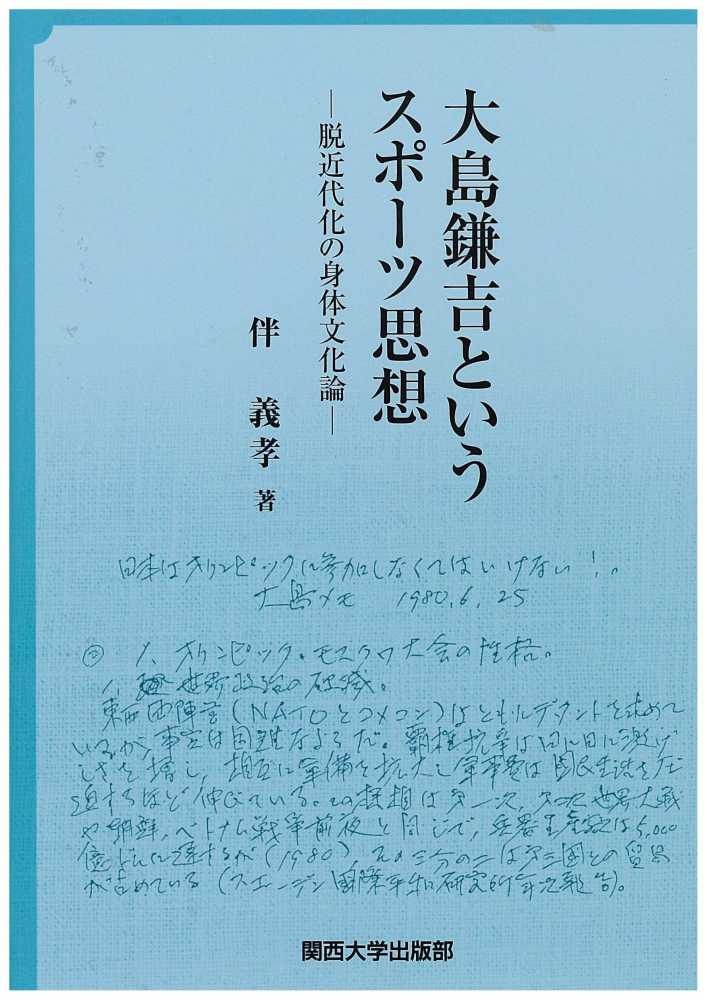 大島鎌吉という
スポーツ思想
―脱近代化の身体文化論―
伴 義孝 著
日本はオリンピックに参加しなくてはいけない!。
大島メモ 1980.6.25
1、オリンピック・モスクワ大会の性格。
1、世界政治の破滅。
東西両陣営(NATOとコメコン)はともにデタントを求めて
いるが、事実は困難なようだ。覇権抗争は日に日に激げ
しさを増し、相互に軍備を拡大し軍事費は国民生活を圧
迫するほど伸びている。この様相は第一次、第二次世界大戦
や朝鮮、ベトナム戦争前夜と同じで、 5,000
億ドルに達するが(1980)、その三分の二は第三国との貿易
が占めている(スエーデン国際平和研究所年次報告)。
関西大学出版部